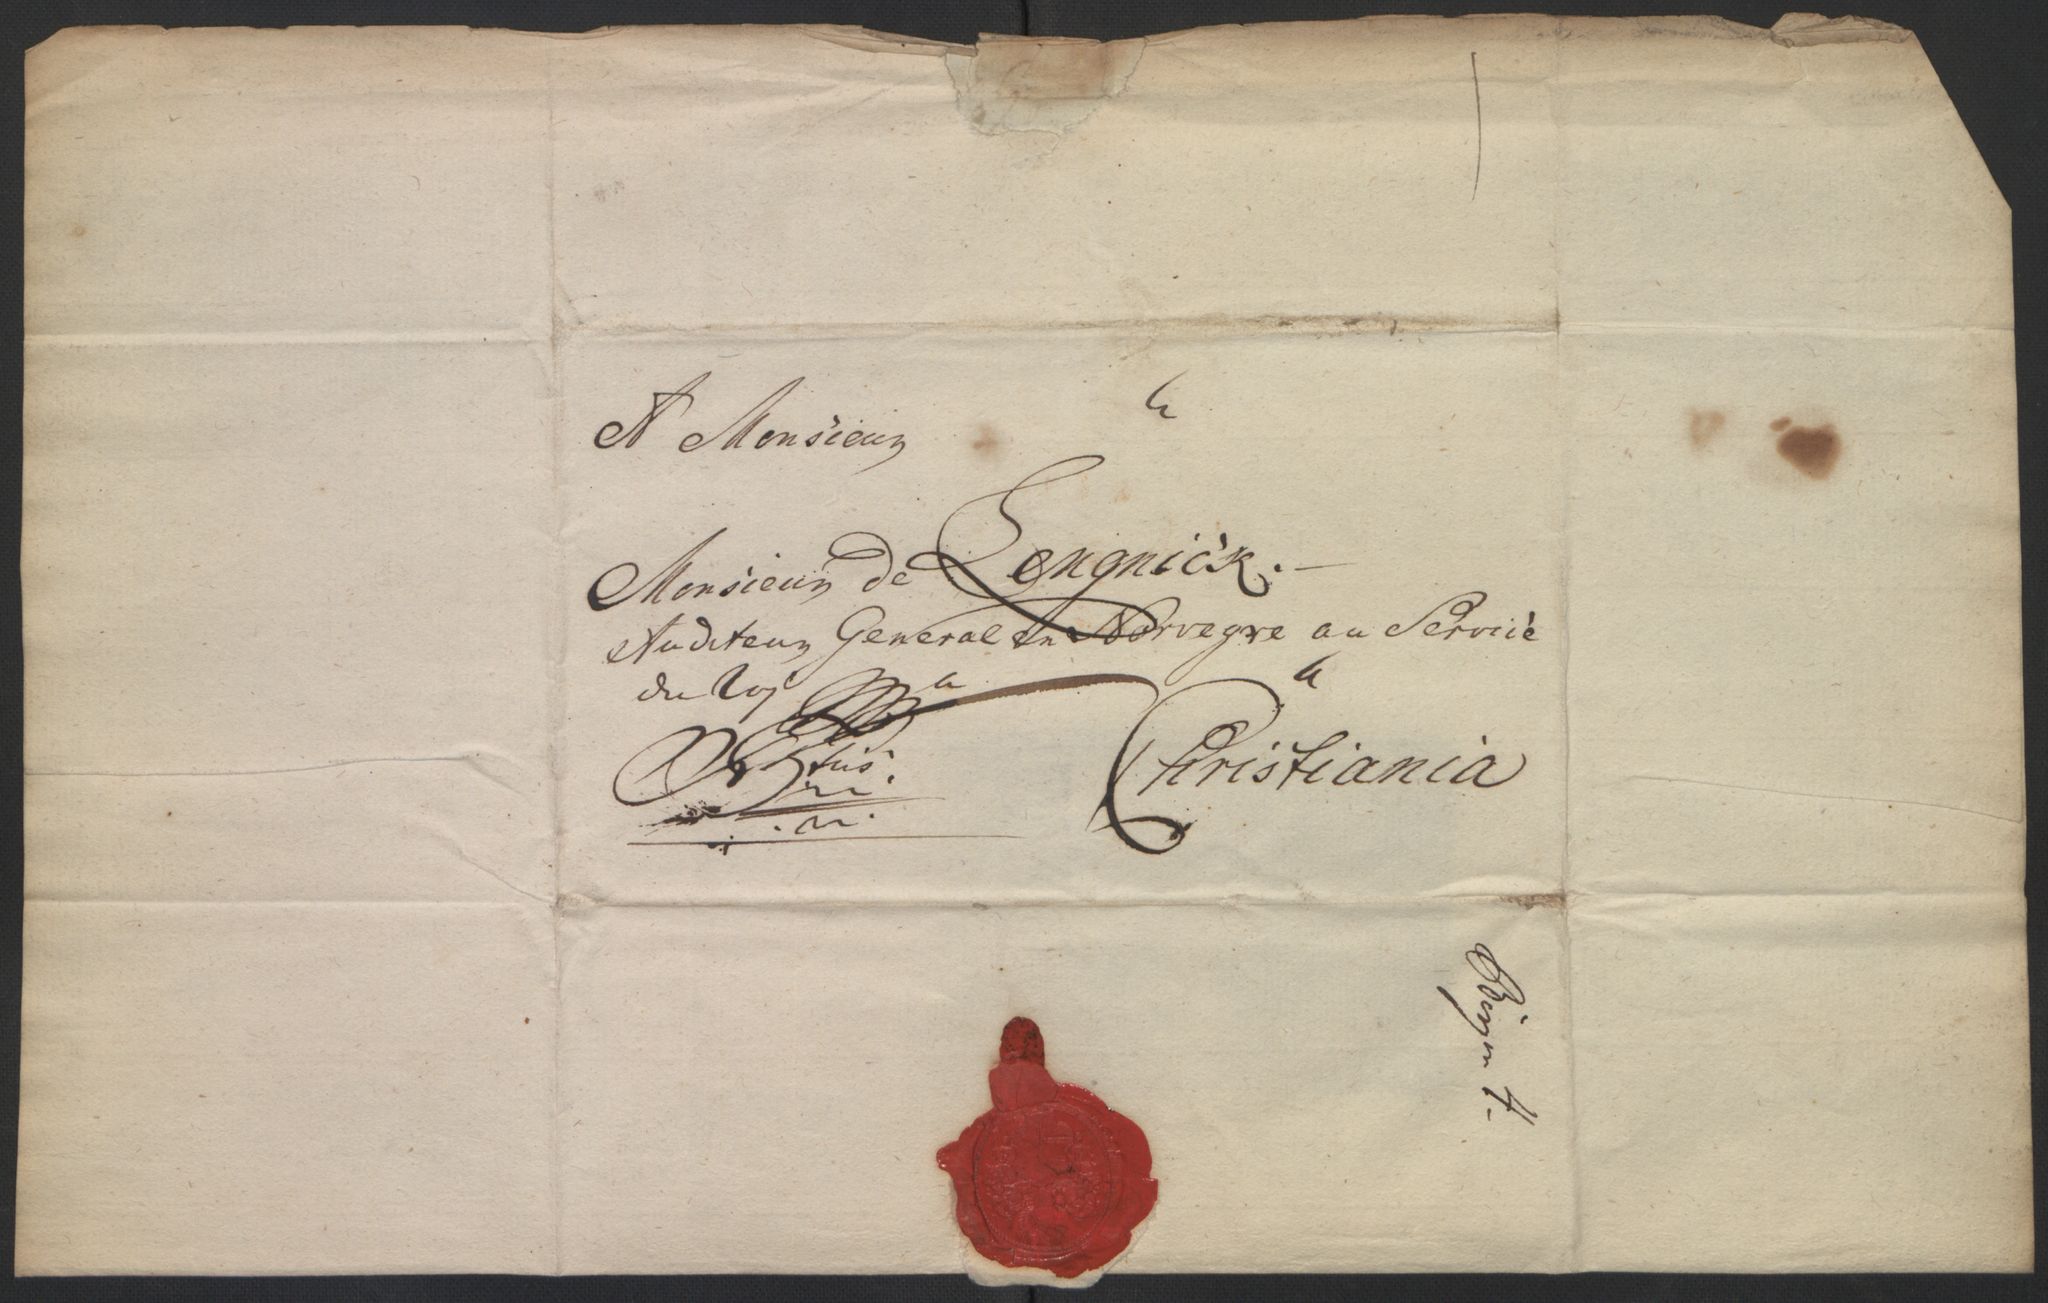 A Monsieur
Monsieur de Lengnick.
Auditeur General en Norvegre au Servicè
du Roj
a
à
Christiania